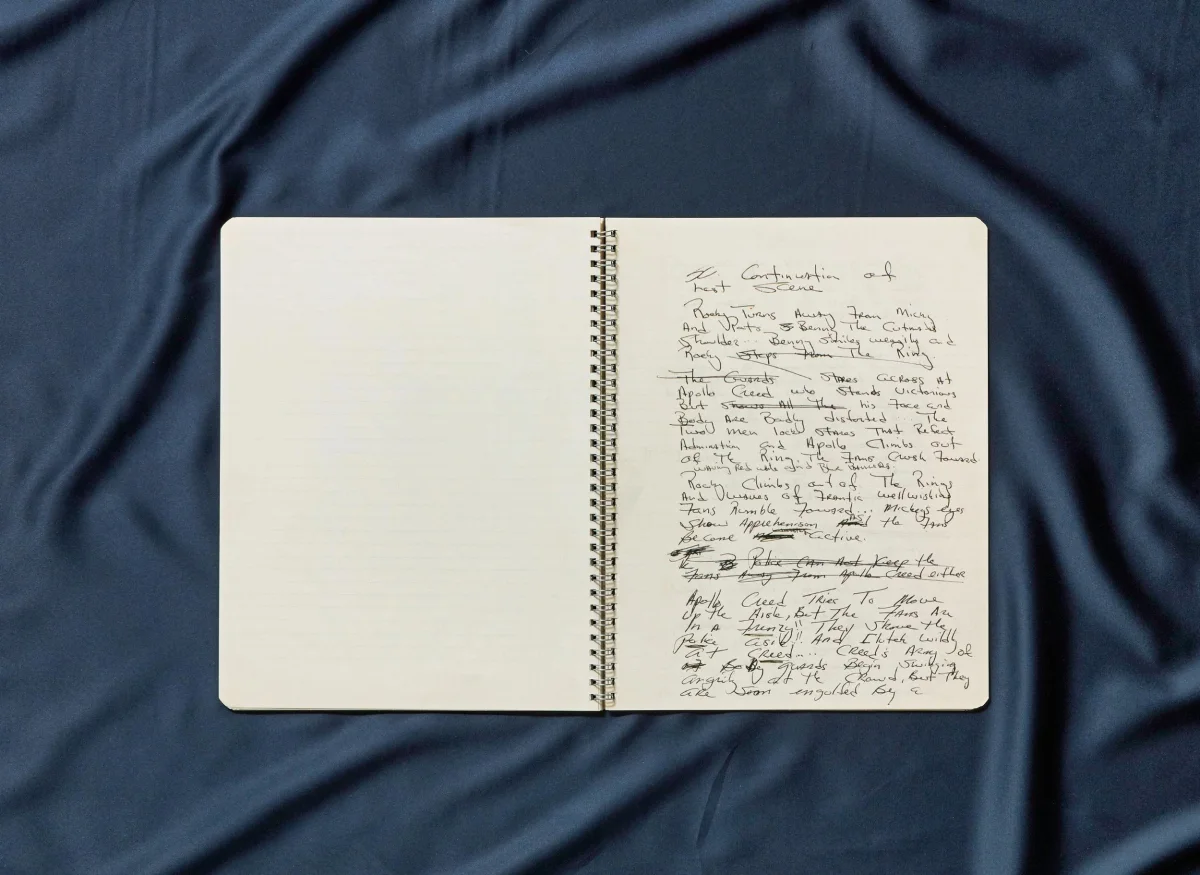 Continuation of
Last Scene
Rocky Turns Away From Micky
And Pats Benny The Cutman's
Shoulder... Benny Smiles wearily and
Rocky Steps From The Ring.
The Guards Stares across At
Apollo Creed who Stands Victorious
But Shows All The his Face and
Body Are Badly distorted. The
Two men lock Stares That Reflect
Admiration and Apollo Climbs out
of The Ring. The Fans Crush Foward
waving Red white and Blue Banners.
Rocky Climbs out of The Rings
And Waves of Frantic wellwishing
Fans Rumble Foward... Mickeys eyes
Show Apprehension As the Fans
Become active.
Police Can Not Keep the
Fans Away From Apollo Creed either
Apollo Creed Tries To Move
Up the Aisle, But The Fans Are
In a Frenzy!! They Shove the
Police aside!! And Clutch wildly
At Creed... Creed's Army of
Body guards Begin Swinging
angrily at the Crowd, But They
are Soon engulfed By a